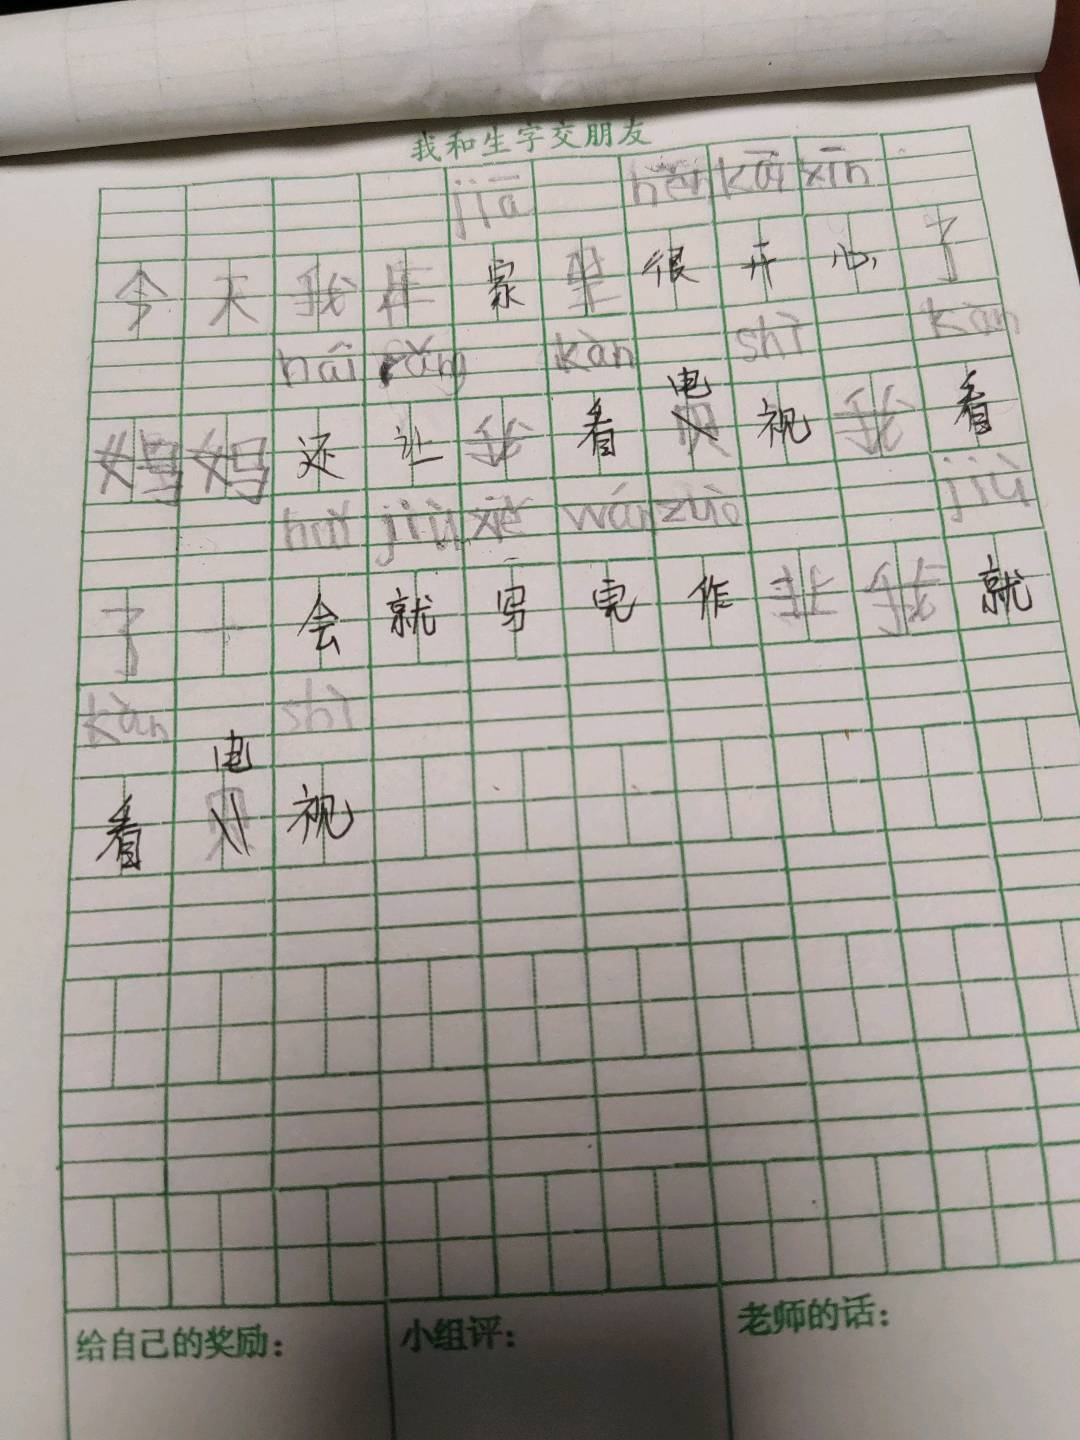 我和生字交朋友
jiā hěn kāi xīn
今天我在家里很开心了
hái ràng kàn shì kàn
电
妈妈还让我看视我看
huì jiù xiě wán zuò jiù
了一会就写完作业我就
kàn shì
电
看视
给自己的奖励: 小组评: 老师的话: